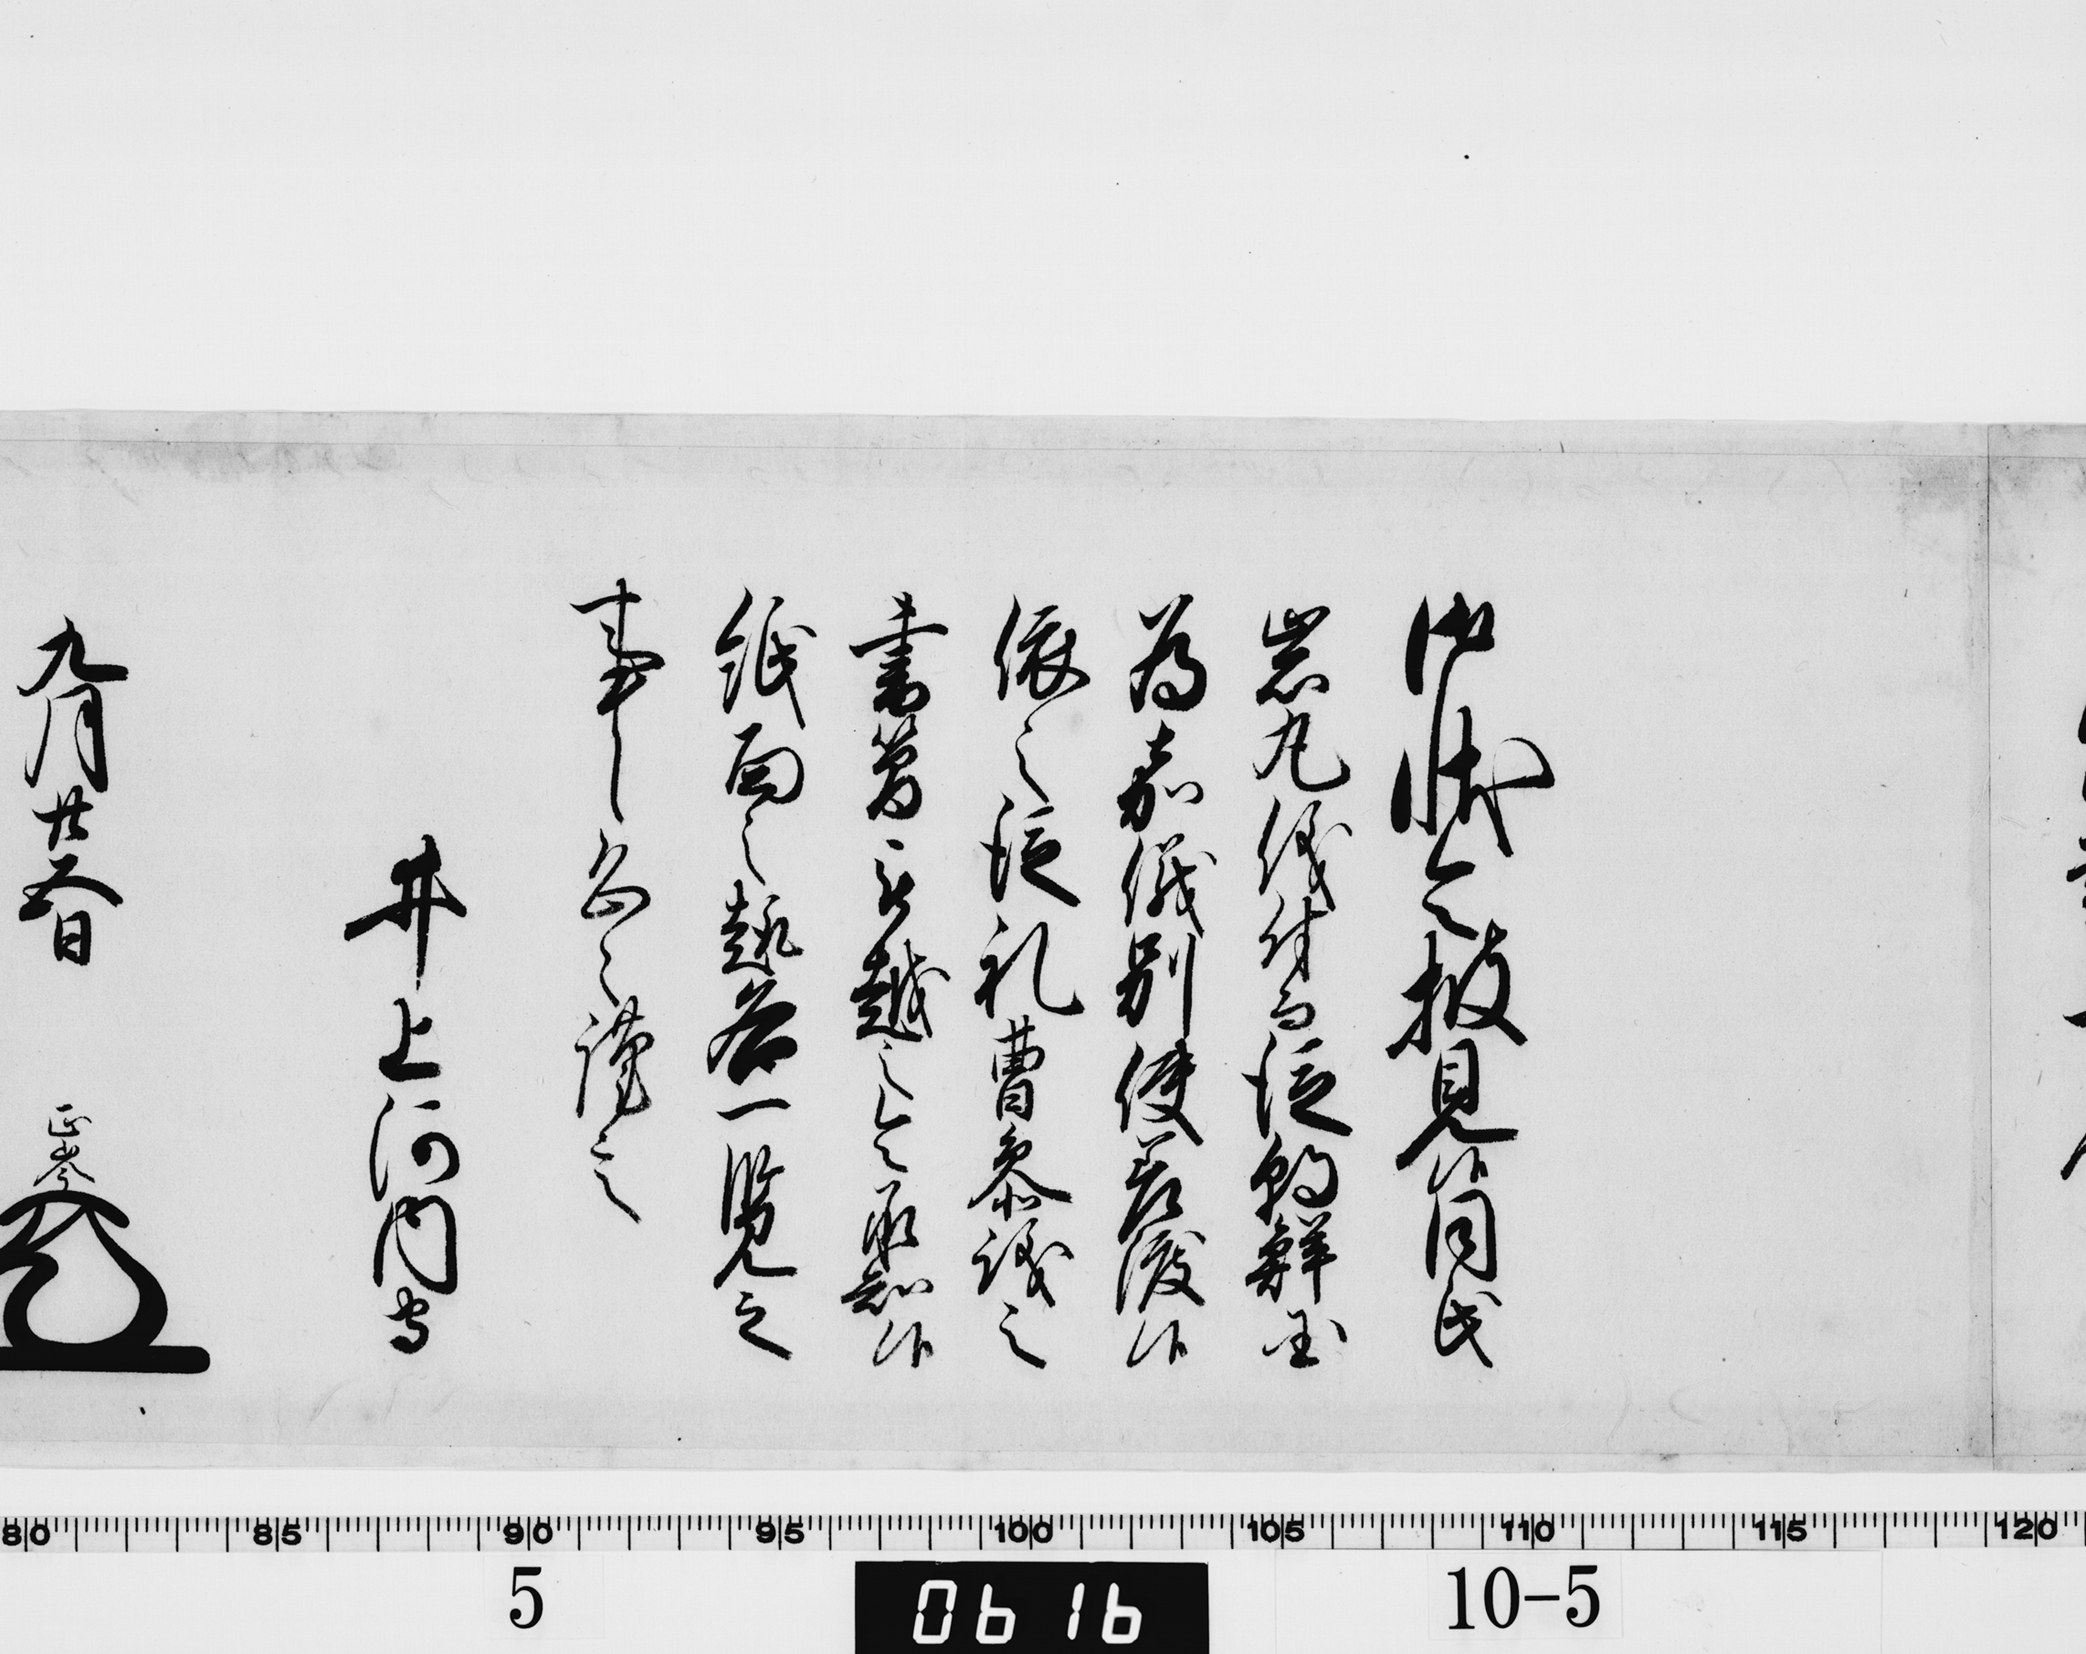 御状令披見候同氏
岩丸儀付而従朝鮮国
為嘉儀別使差渡候
依之従礼曹参議之
書簡被差越之令承知候
紙面之趣各一覧之
事候恐々謹言
井上河内守
九月廿五日
正岑
80 85 90 95 100 105 110 115 120
5 0616 10-5